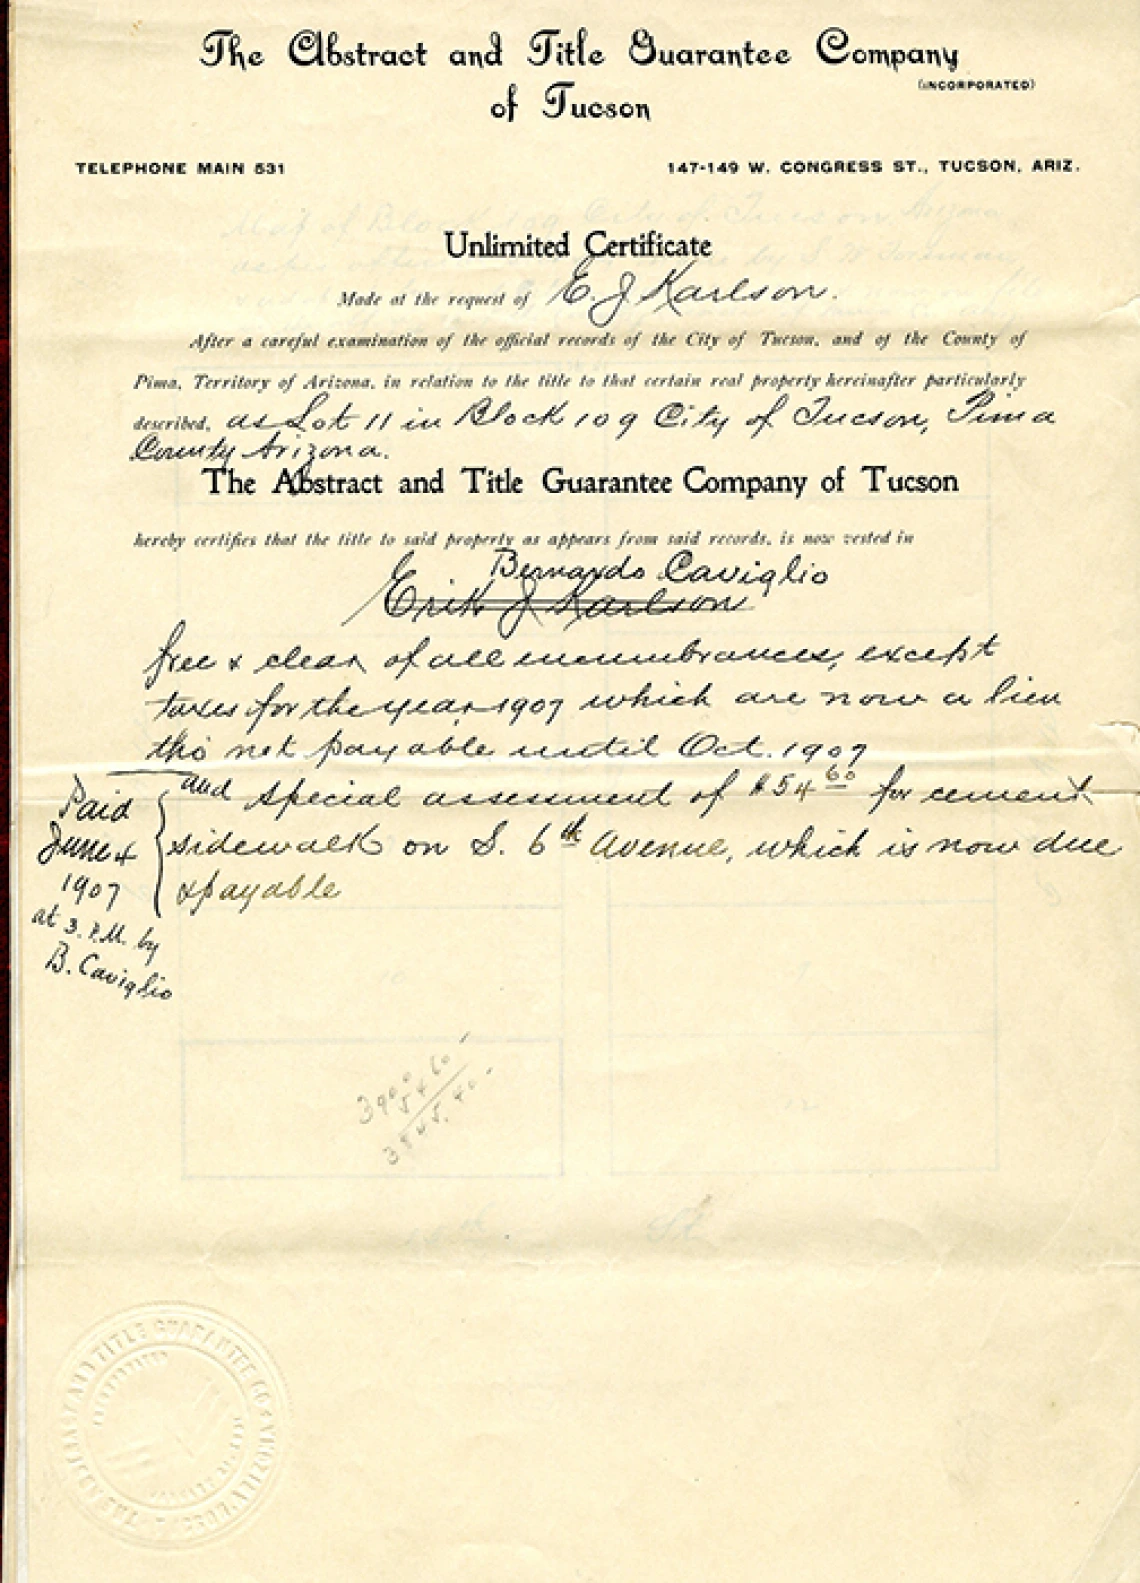 The Abstract and Title Guarantee Company
(INCORPORATED)
of Tucson
TELEPHONE MAIN 531
147-149 W. CONGRESS ST., TUCSON, ARIZ.
Unlimited Certificate
Made at the request of E. J. Karlson.
After a careful examination of the official records of the City of Tucson, and of the County of
Pima, Territory of Arizona, in relation to the title to that certain real property hereinafter particularly
described, as Lot 11 in Block 109 City of Tucson, Pima
County Arizona.
The Abstract and Title Guarantee Company of Tucson
hereby certifies that the title to said property as appears from said records, is now vested in
Bernardo Caviglio
Erik J Karlson
free & clear of all incumbrances, except
taxes for the year 1907 which are now a lien
tho' not payable until Oct. 1907
and special assessment of $54 60 for cement
sidewalk on S. 6th Avenue, which is now due
& payable
Paid
June 4
1907
at 3. P.M. by
B. Caviglio
3900
54 60
3845.40
THE ABSTRACT AND TITLE GUARANTEE CO.